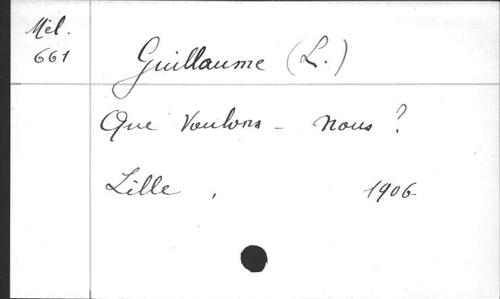 Mél.
661
Guillaume (L.)
Que Voulons - nous ?
Lille , 1906